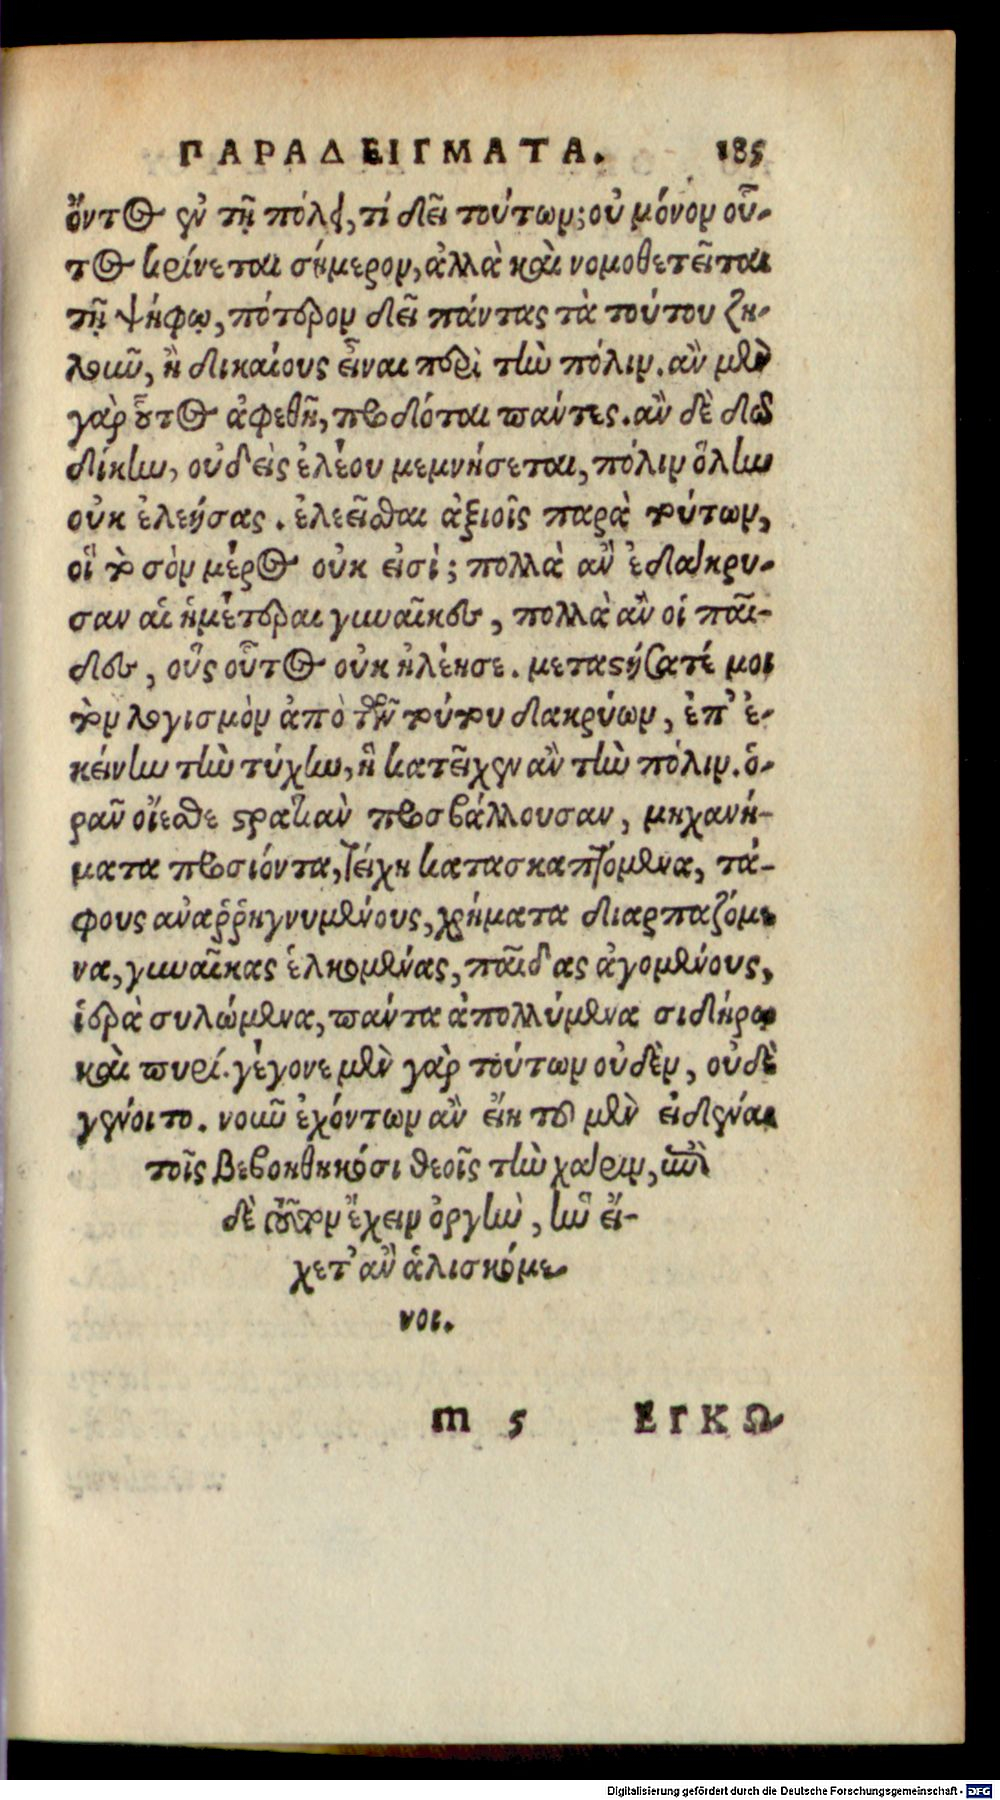 ΠΑΡΑΔΕΙΓΜΑΤΑ. 185
ὄντος ἐν τῇ πόλει, τί δεῖ τούτων; οὐ μόνον οὗ-
τος κρίνεται σήμερον, ἀλλὰ καὶ νομοθετεῖται
τῇ ψήφῳ, πότερον δεῖ πάντας τὰ τούτου ζη-
λοῦν, ἢ δικαίους εἶναι περὶ τὴν πόλιν. ἂν μὲν
γὰρ οὗτος ἀφεθῇ, προδόται πάντες. ἂν δὲ δῷ
δίκην, οὐδεὶς ἐλέου μεμνήσεται, πόλιν ὅλην
οὐκ ἐλεήσας. ἐλεεῖσθαι ἀξιοῖς παρὰ τούτων,
οἳ τὸ σὸν μέρος οὐκ εἰσί; πολλὰ ἂν ἐδάκρυ-
σαν αἱ ἡμέτεραι γυναῖκες, πολλὰ ἂν οἱ παῖ-
δες, οὓς οὗτος οὐκ ἠλέησε. μεταστήσατέ μοι
τὸν λογισμὸν ἀπὸ τῶν τούτου δακρύων, ἐπ' ἐ-
κείνην τὴν τύχην, ἣ κατεῖχεν ἂν τὴν πόλιν. ὁ-
ρᾶν οἴεσθε στρατιὰν προσβάλλουσαν, μηχανή-
ματα προσιόντα, τείχη κατασκαπτόμενα, τά-
φους ἀναῤῥηγνυμένους, χρήματα διαρπαζόμε
να, γυναῖκας ἑλκομένας, παῖδας ἀγομένους,
ἱερὰ συλώμενα, πάντα ἀπολλύμενα σιδήρῳ
καὶ πυρί. γέγονε μὲν γὰρ τούτων οὐδὲν, οὐδὲ
γένοιτο. νοῦν ἐχόντων ἂν εἴη τὸ μὲν εἰδέναι
τοῖς βεβοηθηκόσι θεοῖς τὴν χάριν, ἐπὶ
δὲ τοῦτον ἔχειν ὀργὴν, ἣν εἴ-
χετ' ἂν ἁλισκόμε
νοι.
m 5 ΕΓΚΩ-
Digitalisierung gefördert durch die Deutsche Forschungsgemeinschaft - DFG